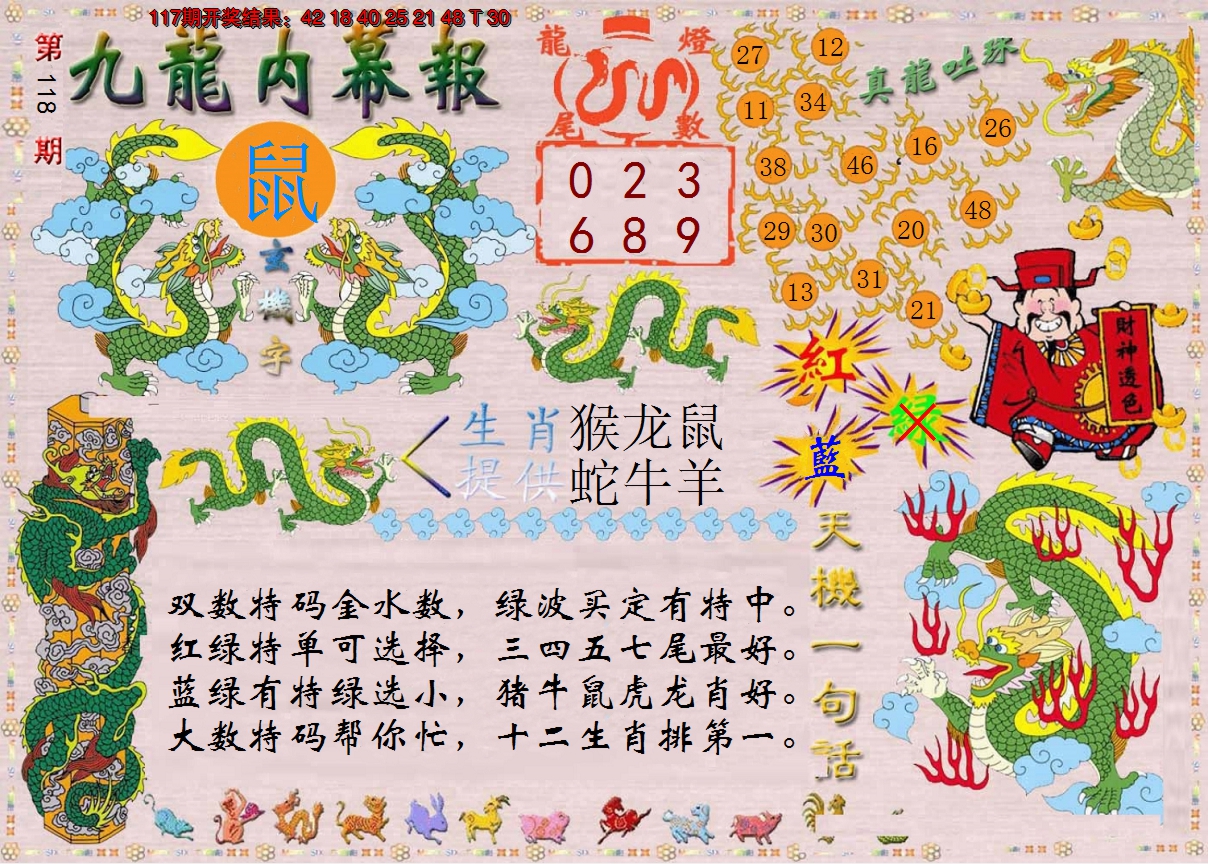 117期开奖结果：42 18 40 25 21 48 T 30
第118期
九龍内幕報
鼠
玄機字
龍燈
尾數
0 2 3
6 8 9
真龍吐珠
27 12
11 34
38 46 16 26
29 30 20 48
13 31 21
紅
绿
藍
財神透色
生肖 猴龙鼠
提供 蛇牛羊
天機一句話
双数特码金水数，绿波买定有特中。
红绿特单可选择，三四五七尾最好。
蓝绿有特绿选小，猪牛鼠虎龙肖好。
大数特码帮你忙，十二生肖排第一。